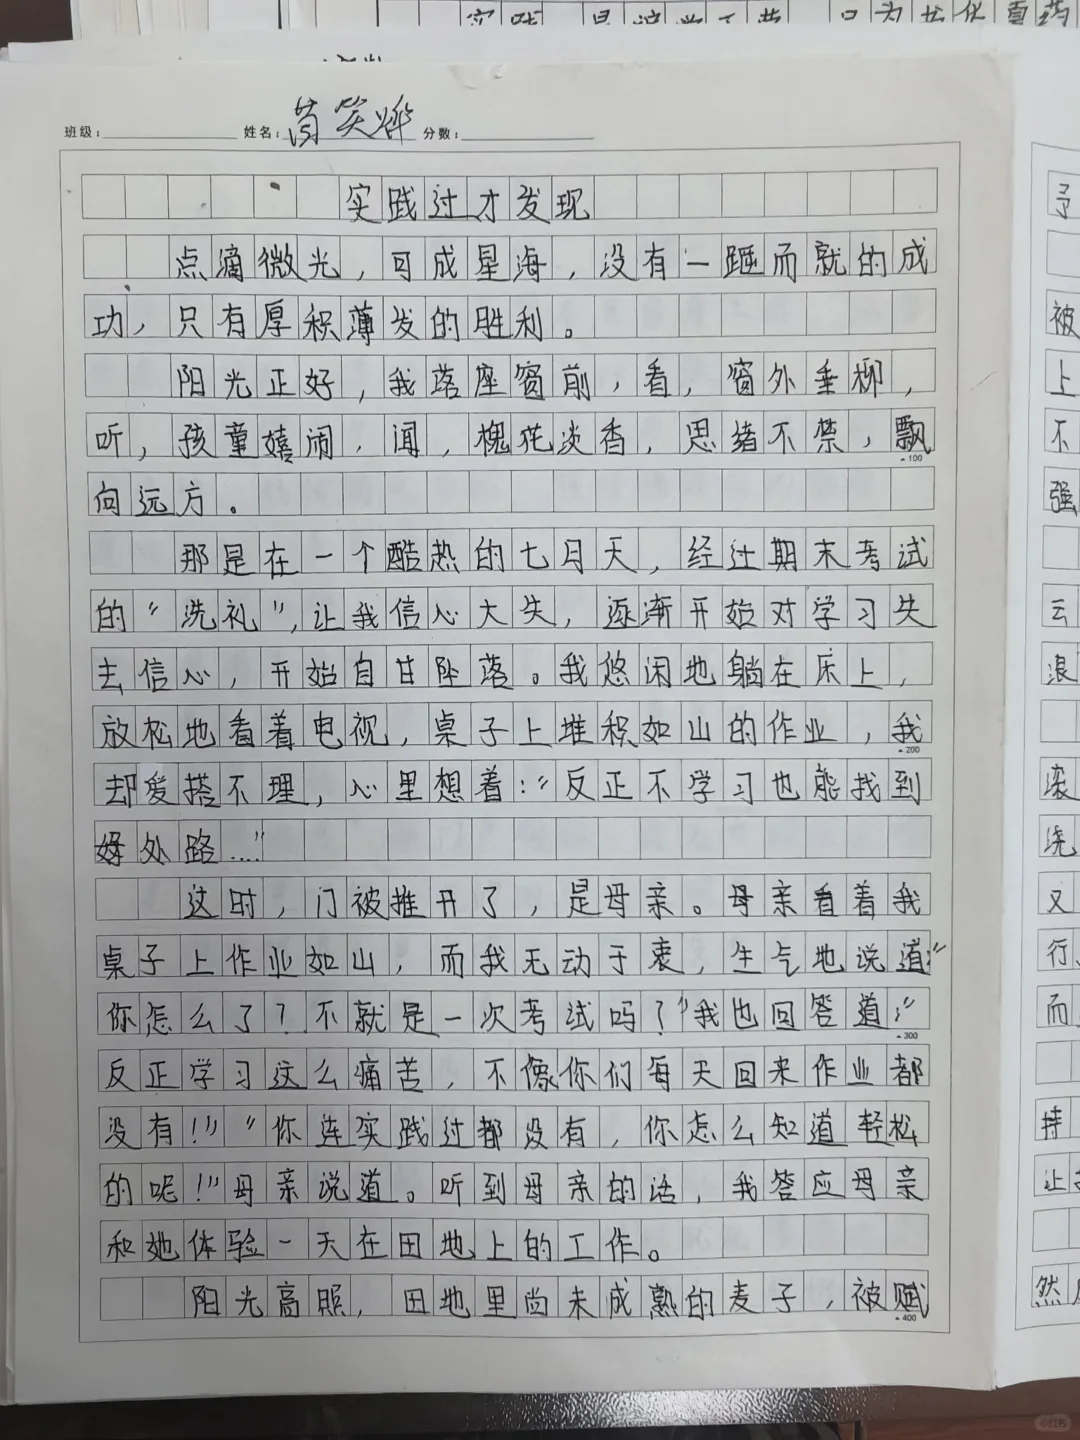 班级： 姓名： 笑烨 分数：
实践过才发现
点滴微光，可成星海，没有一蹴而就的成
功，只有厚积薄发的胜利。
阳光正好，我落座窗前，看，窗外垂柳，
听，孩童嬉闹，闻，槐花淡香，思绪不禁，飘
▲100
向远方。
那是在一个酷热的七月天，经过期末考试
的“洗礼”，让我信心大失，逐渐开始对学习失
去信心，开始自甘坠落。我悠闲地躺在床上，
放松地看着电视，桌子上堆积如山的作业，我
▲200
却爱搭不理，心里想着：“反正不学习也能找到
好处路……”
这时，门被推开了，是母亲。母亲看着我
桌子上作业如山，而我无动于衷，生气地说道：“
你怎么了？不就是一次考试吗？”我也回答道：“
▲300
反正学习这么痛苦，不像你们每天回来作业都
没有！”“你连实践过都没有，你怎么知道轻松
的呢！”母亲说道。听到母亲的话，我答应母亲
和她体验一天在田地上的工作。
阳光高照，田地里尚未成熟的麦子，被赋
▲400
予
被
上
不
强
云
浪
滚
浇
又
行、
而
持
让
然
小红书